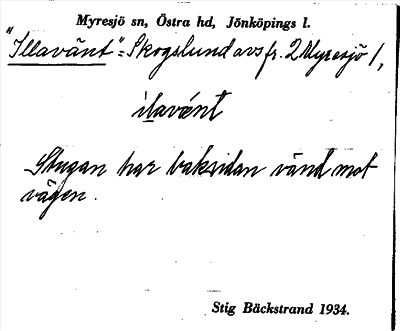 Myresjö sn, Östra hd, Jönköpings l.
"Illavänt" = Skogslund avs fr. 2 Myresjö 1,
ilavént
Stugan har baksidan vänd mot
vägen.
Stig Bäckstrand 1934.